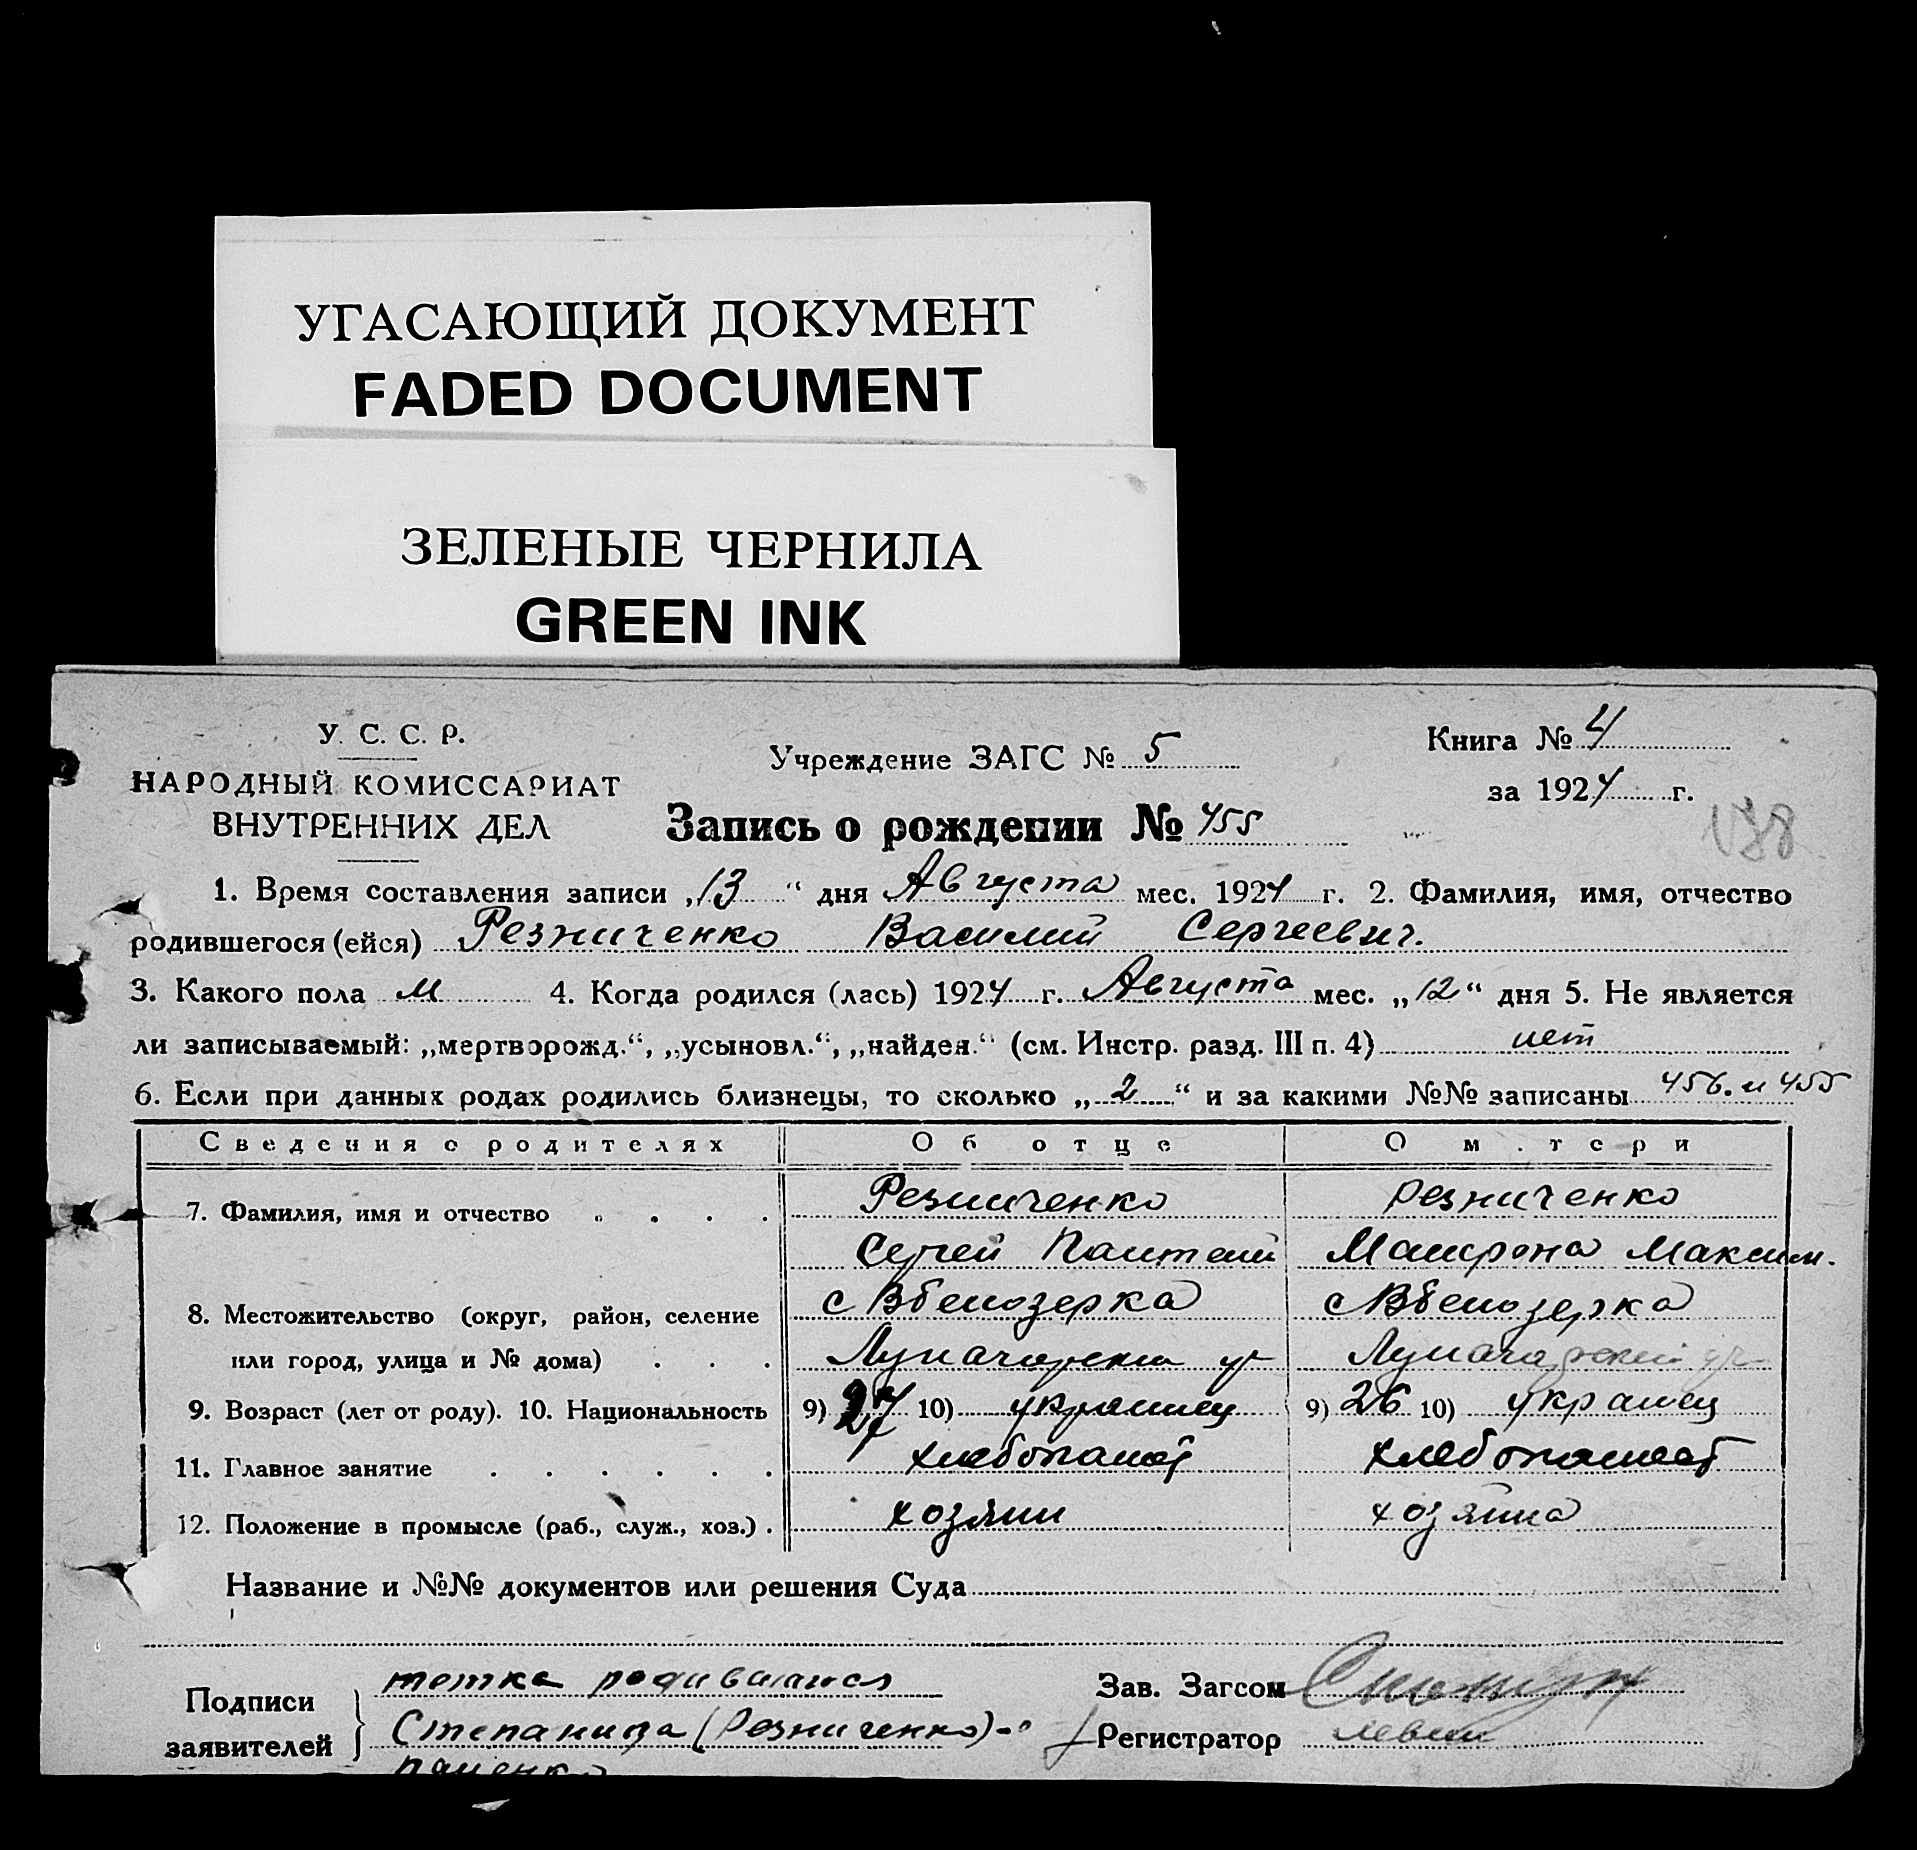 УГАСАЮЩИЙ ДОКУМЕНТ
FADED DOCUMENT
ЗЕЛЕНЫЕ ЧЕРНИЛА
GREEN INK
У. С. С. Р.
НАРОДНЫЙ КОМИССАРИАТ
ВНУТРЕННИХ ДЕЛ
Учреждение ЗАГС № 5
Книга № 4
за 1924 г.
Запись о рождении № 455
138
1. Время составления записи „13“ дня Августа мес. 1924 г. 2. Фамилия, имя, отчество
родившегося (ейся) Резниченко Василий Сергеевич.
3. Какого пола м 4. Когда родился (лась) 1924 г. Августа мес. „12“ дня 5. Не является
ли записываемый: „мертворожд.“, „усыновл.“, „найден.“ (см. Инстр. разд. III п. 4) нет
6. Если при данных родах родились близнецы, то сколько „2“ и за какими №№ записаны 456. и 455
Сведения о родителях Об отце О м.тери
7. Фамилия, имя и отчество . . . . Резниченко Резниченко
Сергей Пантелий Макрона Максим.
8. Местожительство (округ, район, селение с Вбелозерка с Вбелозерка
или город, улица и № дома) . . . Луначарский ул Луначарский ул
9. Возраст (лет от роду). 10. Национальность 9) 27 10) украинец 9) 26 10) украинец
11. Главное занятие . . . . . . хлебопашец хлебопашест
12. Положение в промысле (раб., служ., хоз.) . хозяин хозяина
Название и №№ документов или решения Суда
Подписи заявителей
тетка родившагося
Степанида (Резниченко)
Зав. Загсом
Регистратор Левин